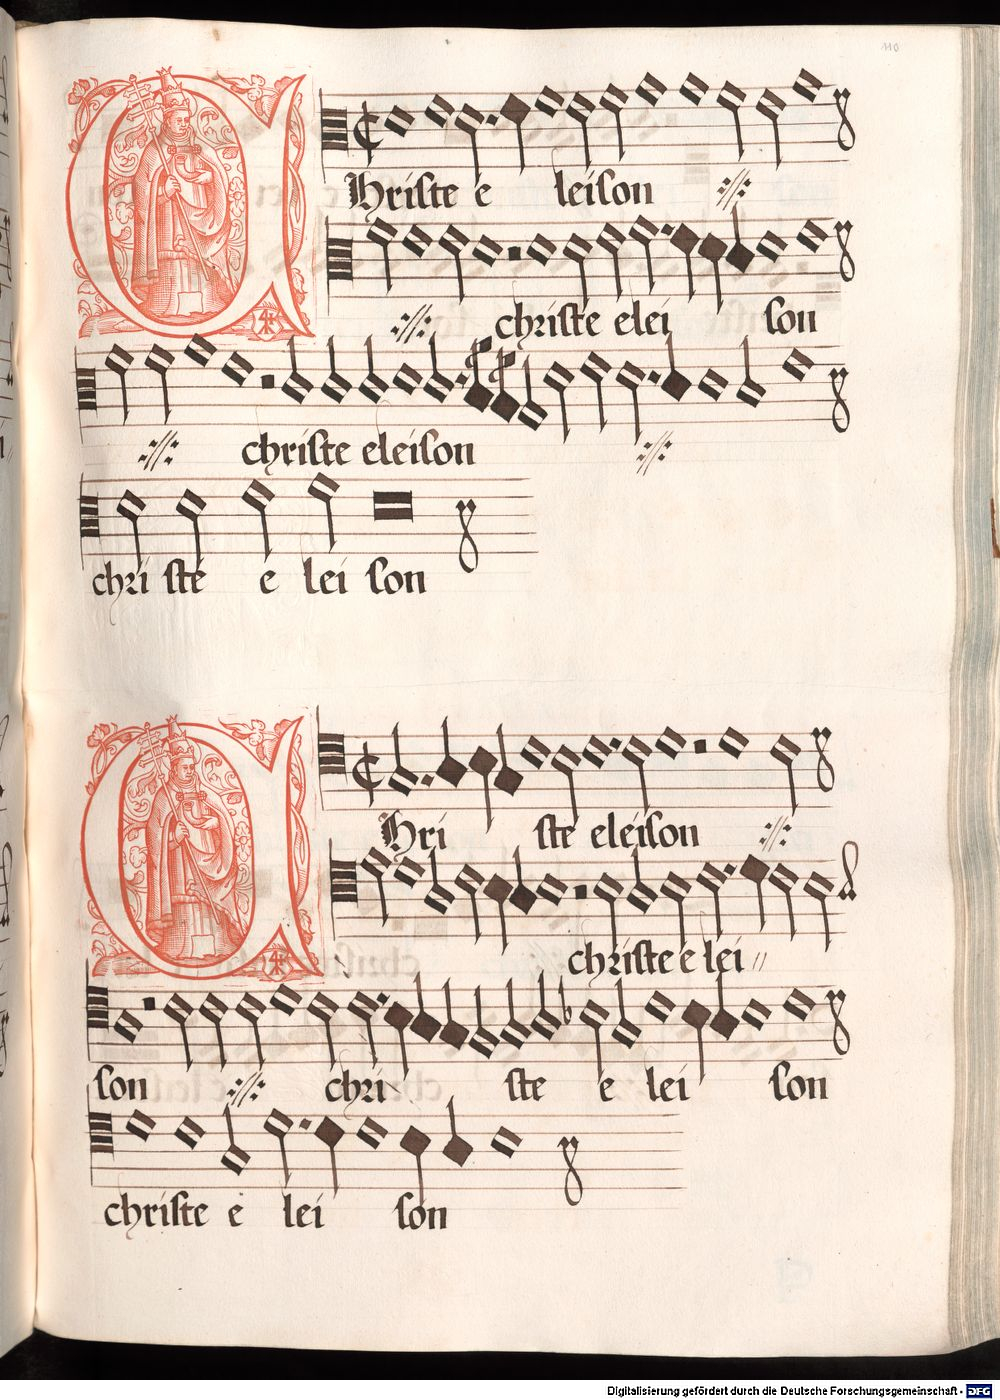 110
CHriste e leison ·//·
·//· christe elei son
·//· christe eleison ·//·
chri ste e lei son
CHri ste eleison ·//·
christe e lei //
son ·//· chri ste e lei son
christe e lei son
Digitalisierung gefördert durch die Deutsche Forschungsgemeinschaft - DFG